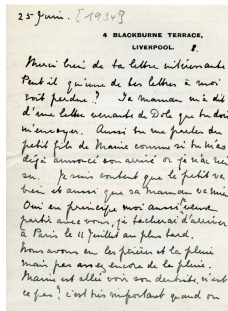 25 Juin. [1934]
4 BLACKBURNE TERRACE,
LIVERPOOL. 8.
Merci bien de ta lettre intéressante
Peut il qu'une de tes lettres à moi
soit perdue? Ta maman m'a dit
d'une lettre venante de Dole que tu dois
m'envoyer. Aussi tu me parles du
petit fils de Marie comme si tu m'as
déjà annoncé son arrivé or je n'ai rien
su. Je suis content que le petit va
bien et aussi que sa maman va mieux
Oui en principe moi aussi serai
parti avec vous, je tacherai d'arriver
à Paris le 11 Juillet au plus tard.
Nous avons eu les prières et la pluie
mais pas assez encore de la pluie.
Marie est allée voir son dentiste, n'est
ce pas? c'est très important quand on